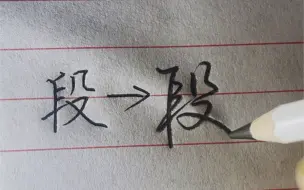 段→段